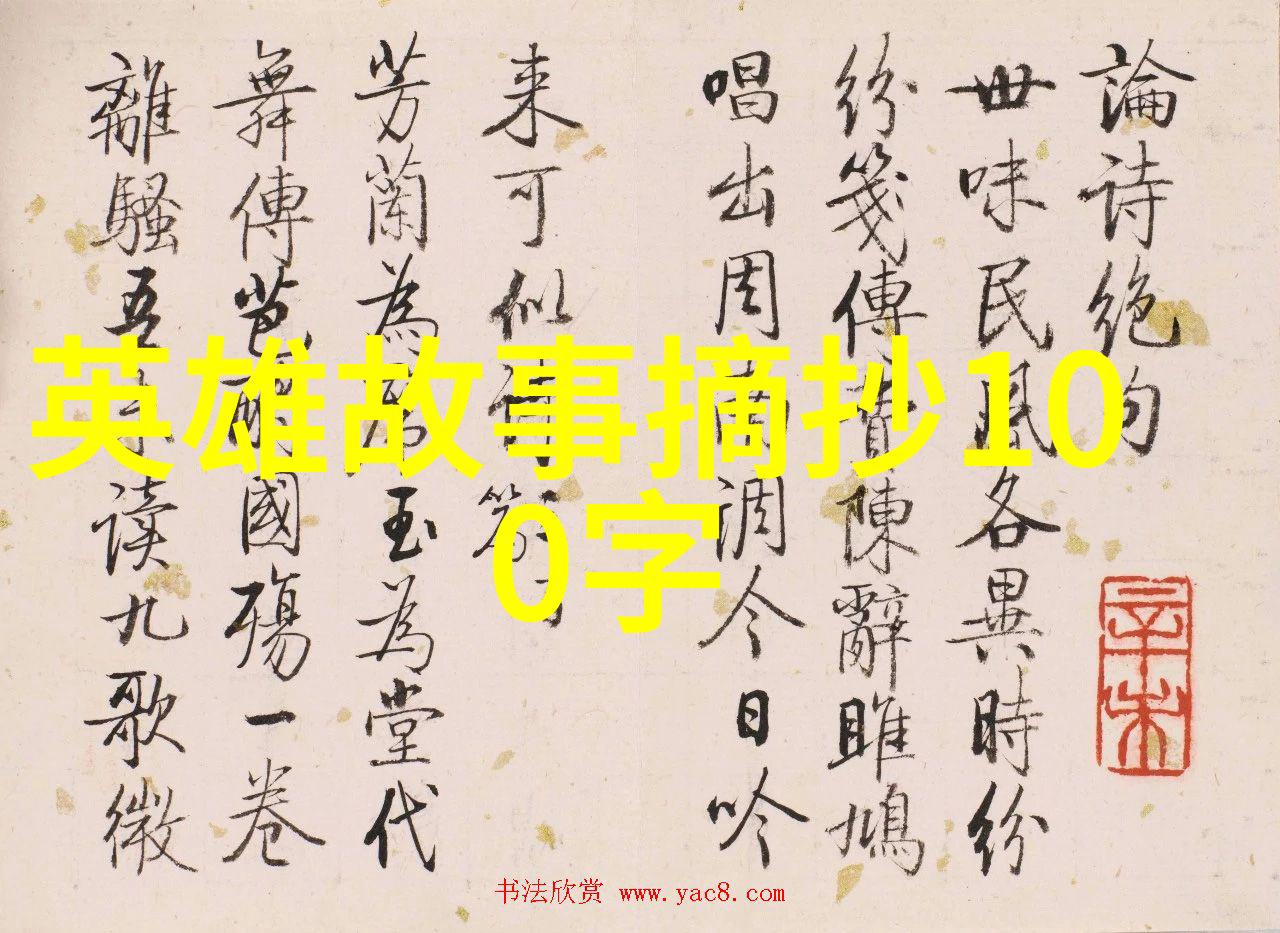 論诗絕句
世味民風各異時紛
紛箋傳費陳辭雎鳩
唱出周南調今日吟
来可似
芳蘭為玉為堂代
舞傳芭國殤一卷
離騷吾未读九歌微
辛未
英雄故事摘抄10
0字
书法欣赏 www.yac8.com